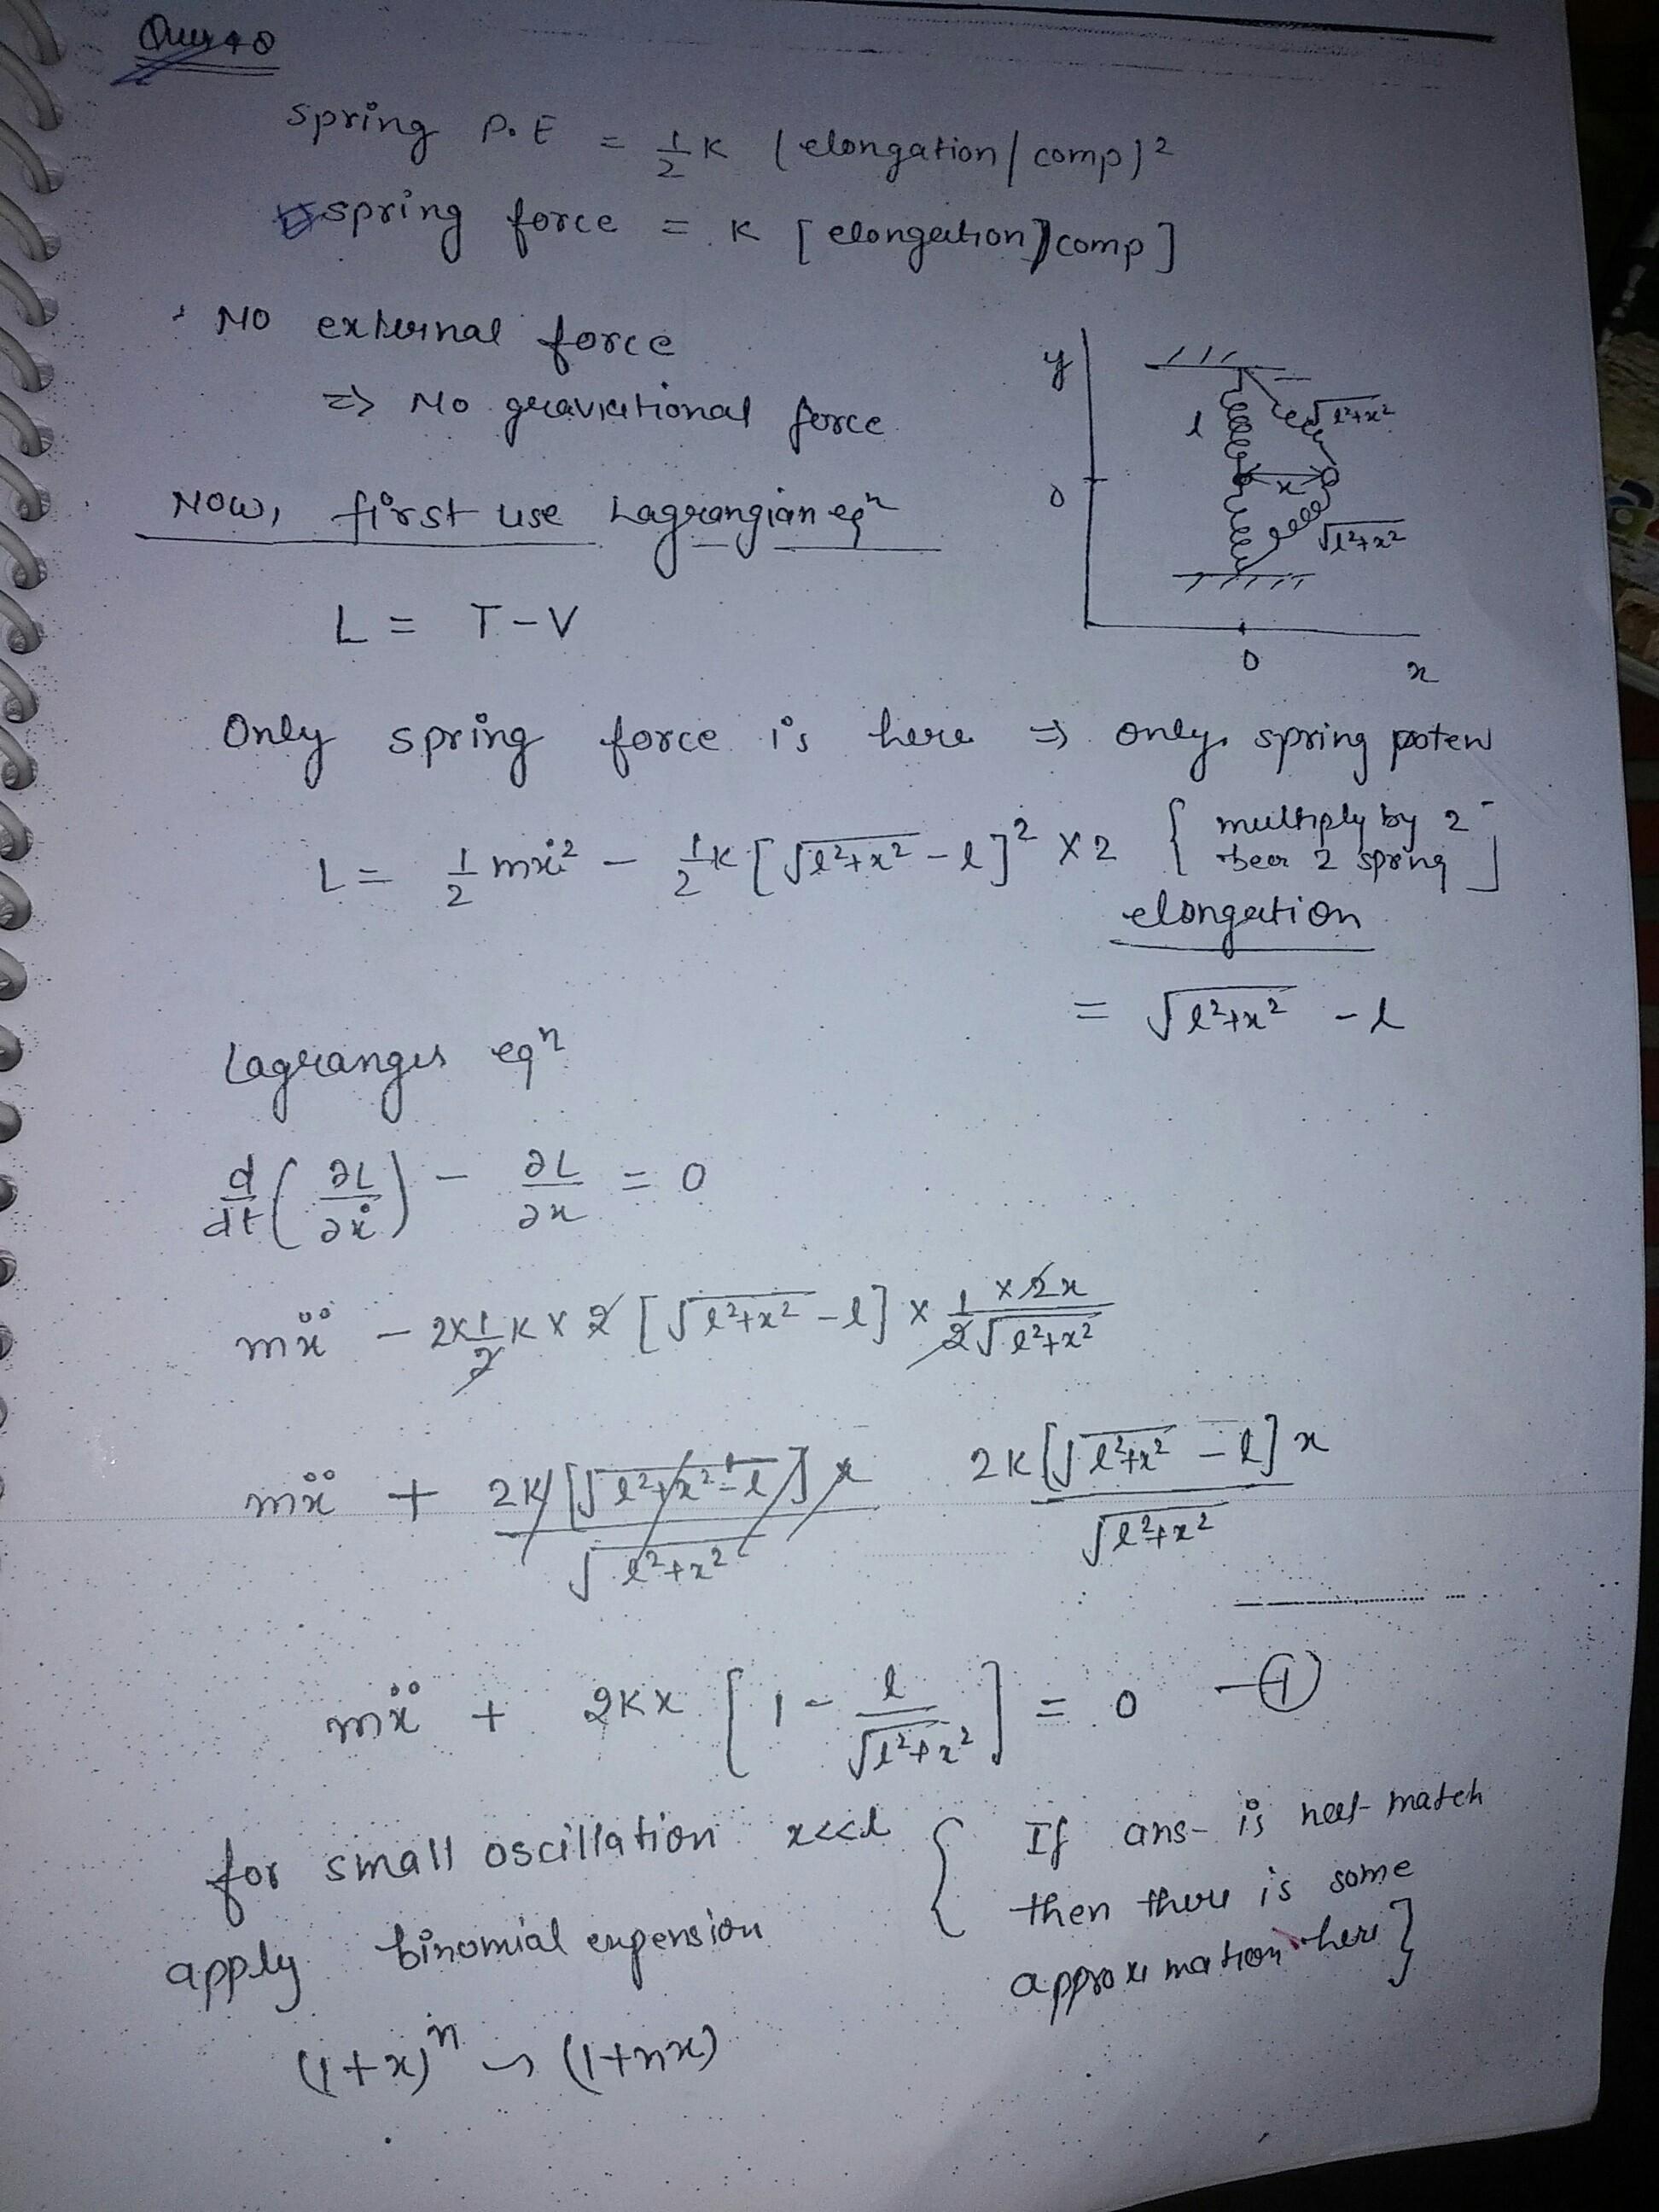 Ques 40
Spring P.E = 1/2 K (elongation/comp)²
spring force = K [elongation/comp]
No external force
⇒ No gravitational force
y
l
√l²+x²
0
x
√l²+x²
0
x
Now, first use Lagrangian eqⁿ
L = T - V
Only spring force is here ⇒ only spring poten
L = 1/2 mẋ² - 1/2 K [√l²+x² - l]² × 2 { multiply by 2
2 spring ]
elongation
= √l²+x² - l
Lagranges eqⁿ
d/dt (∂L/∂ẋ) - ∂L/∂x = 0
mẍ - 2×1/2 K × 2 [√l²+x² - l] × 1/2 × 2x/√l²+x²
mẍ + 2K [√l²+x² - l] x/√l²+x² 2K [√l²+x² - l] x/√l²+x²
mẍ + 2Kx [1 - l/√l²+x²] = 0 —①
for small oscillation x<<l
apply binomial expension
{ If ans- is not match
then there is some
approximation here }
(1+x)ⁿ ~ (1+nx)